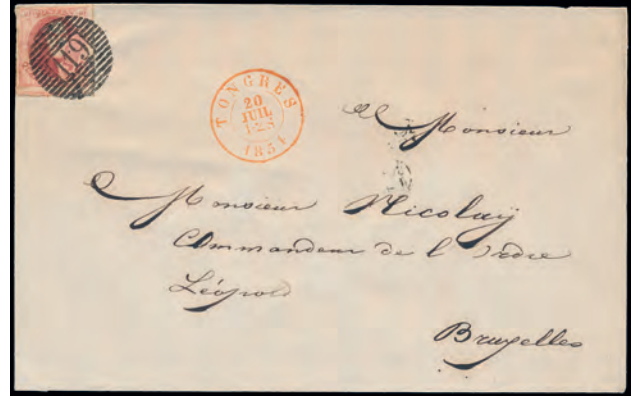 119
TONGRES
20
JUIL
1-2S
1854
Monsieur
Monsieur Nicolaÿ
Commandeur de l'Ordre
Léopold
Bruxelles